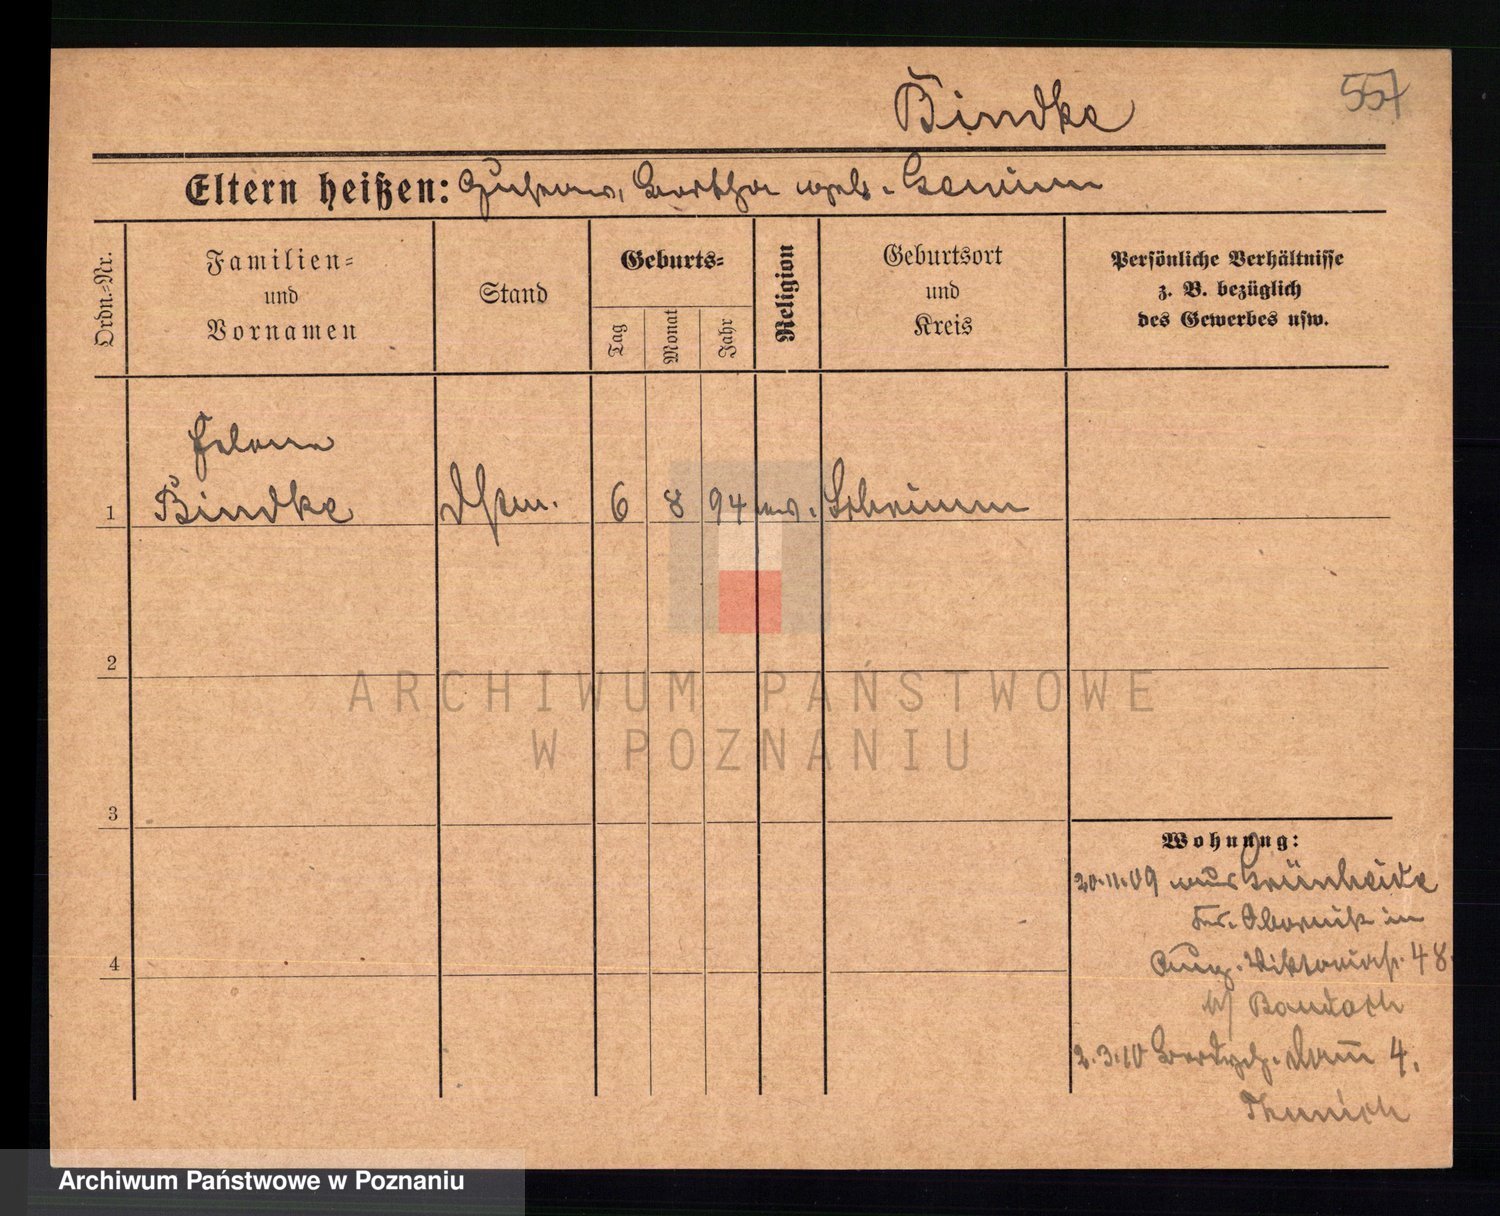 Bindke
557
Eltern heißen: Gustav, Bertha geb.
Ordn.-Nr.
Familien-
und
Vornamen
Stand
Geburts-
Tag
Monat
Jahr
Religion
Geburtsort
und
Kreis
Persönliche Verhältnisse
z. B. bezüglich
des Gewerbes usw.
Helene
1 Bindke Dstm. 6 8 94 ev. Schrimm
2
3
4
Wohnung:
20.11.09 aus Grünheide
Kr. Obornik in
Aug. Viktoriast. 48
b/
2.3.10 4.
ARCHIWUM PAŃSTWOWE
W POZNANIU
Archiwum Państwowe w Poznaniu